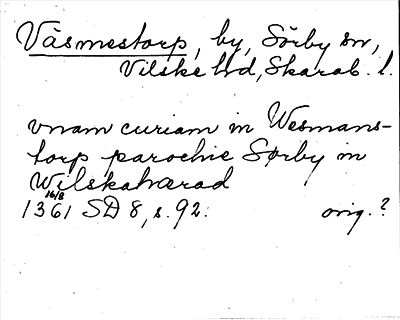 Väsmestorp, by, Sörby sn,
Vilske hd, Skarab. l.
vnam curiam in Wesmans-
torp parochie Sørby in
Wilskahærad
16/8
1361 SD 8, s. 92. orig.?